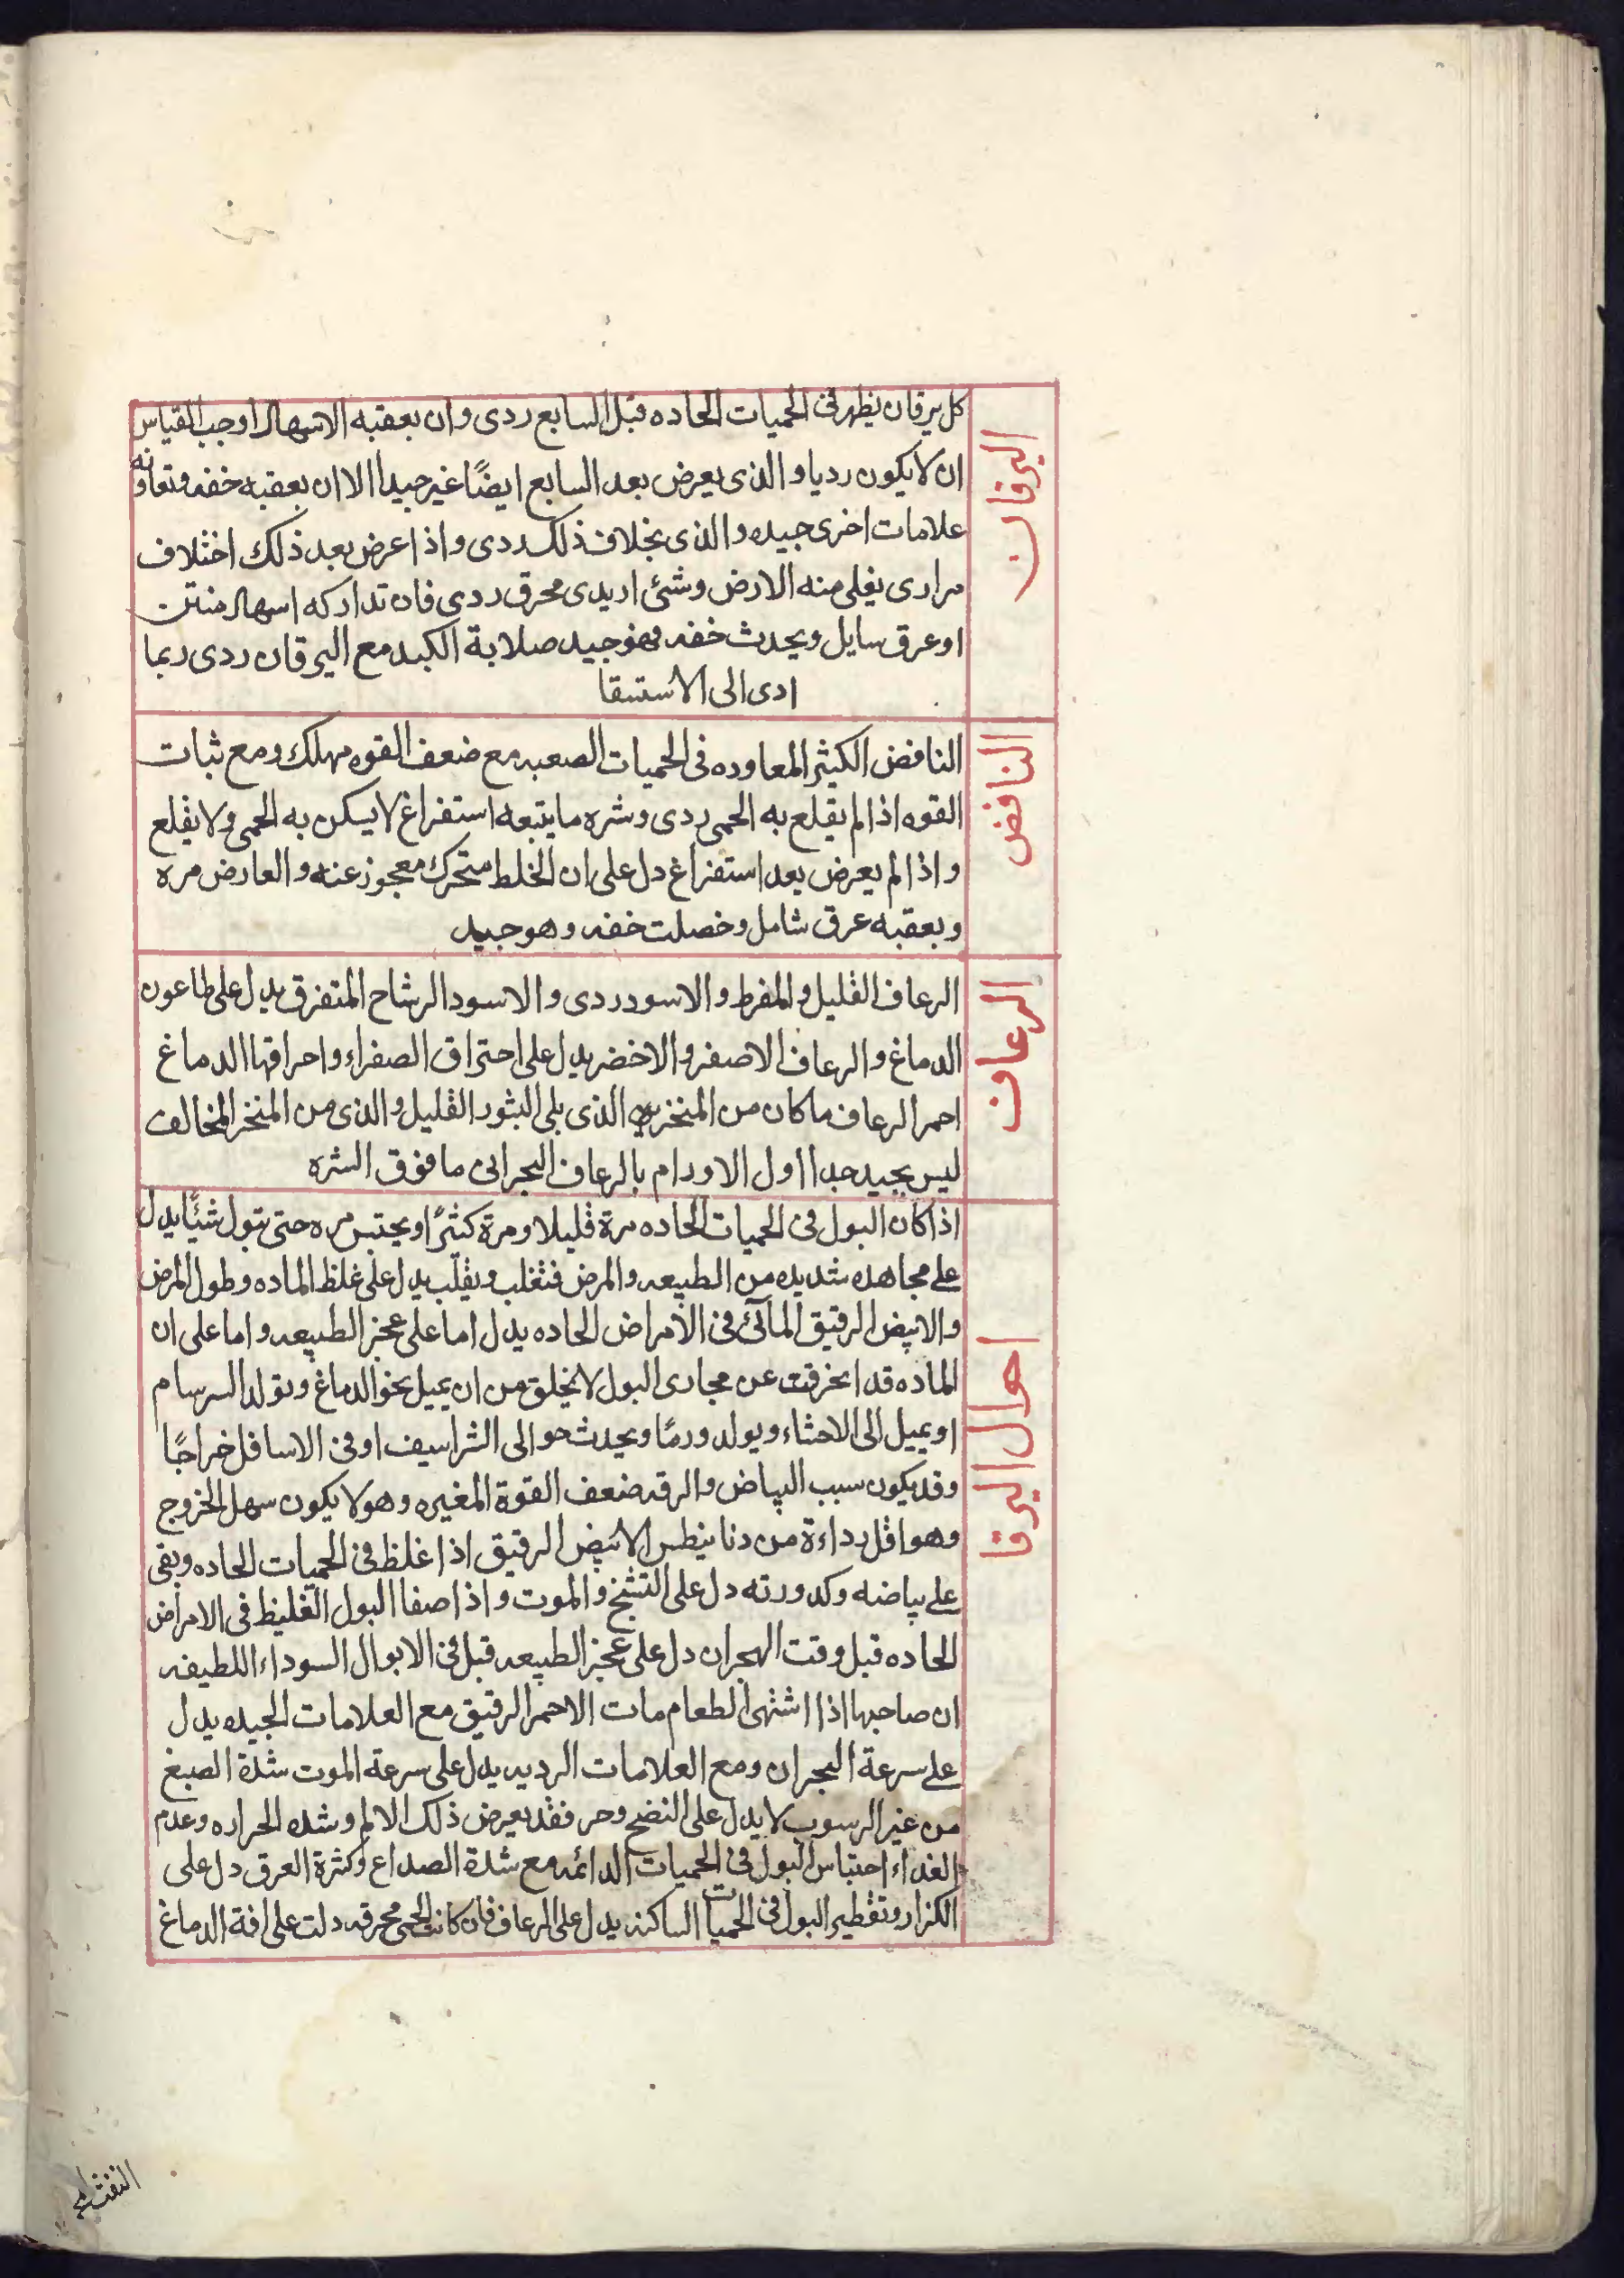 اليرقان
كل يرقان يظهر فى الحميات الحاده قبل السابع ردى وان يعقبه الاسهال اوجب القياس
ان لا يكون رديا والذى يعرض بعد السابع ايضًا غير جيدا الا ان يعقبه خفه وتعاونه
علامات اخرى جيده والذى بخلاف ذلك ردى واذا عرض بعد ذلك اختلاف
مرارى يغلى منه الارض وشئ اريدى محرق ردى فان تداركه اسهال منتن
او عرق سايل ويحدث خفه فهو جيد صلابة الكبد مع اليرقان ردى ربما
ادى الى الاستسقا
النافض
النافض الكثير المعاوده فى الحميات الصعبه مع ضعف القوه مهلك ومع ثبات
القوه اذا لم يقلع به الحمى ردى وشره ما يتبعه استفراغ لا يسكن به الحمى ولا يقلع
واذا لم يعرض بعد استفراغ دل على ان الخلط متحرك معجوز عنه والعارض مره
ويعقبه عرق شامل وخصلت خفه وهو جيد
الرعاف
الرعاف القليل والمفرط والاسود ردى والاسود الرشاح المتفرق يدل على طاعون
الدماغ والرعاف الاصفر والاخضر يدل على احتراق الصفراء واحراقها الدماغ
احمر الرعاف ما كان من المنخرين الذى يلى البثور القليل والذى من المنخر المخالف
ليس بجيد جدا اول الاورام بالرعاف البحرانى ما فوق السره
احوال اليرقا
اذا كان البول فى الحميات الحاده مرة قليلا ومرة كثيرًا ويحتبس مره حتى تبول شيًا يدل
على مجاهده شديده من الطبيعه والمرض فتغلب ويقلب يدل على غلظ الماده وطول المرض
والابيض الرقيق المآئى فى الامراض الحاده يدل اما على عجز الطبيعه واما على ان
الماده قد انحرفت عن مجارى البول لا يخلق من ان يميل نحو الدماغ وتولد السرسام
او يميل الى الاحشاء ويولد ورمًا ويحدث حوالى الشراسيف او فى الاسافل خراجًا
وقد يكون سبب البياض والرقه ضعف القوة المغيره وهو لا يكون سهل الخروج
وهو اقل رداءة من دنا نيطس الابيض الرقيق اذا غلظ فى الحميات الحاده وبقى
على بياضه وكدورته دل على التشنج والموت واذا صفا البول الغليظ فى الامراض
الحاده قبل وقت البهجران دل على عجز الطبيعه قبل فى الابوال السوداء اللطيفه
ان صاحبها اذا اشتهى الطعام مات الاحمر الرقيق مع العلامات الجيده يدل
على سرعة البحران ومع العلامات الرديه يدل على سرعة الموت شدة الصبغ
من غير الرسوب لا يدل على النضج وحر فقد يعرض ذلك الالم وشده الحراره وعدم
الغداء احتباس البول فى الحميات الدائمه مع شدة الصداع وكثرة العرق دل على
الكزاز وتقطير البول فى الحميات الساكنه يدل على الرعاف فان كانت الحمى محرقه دلت على افة الدماغ